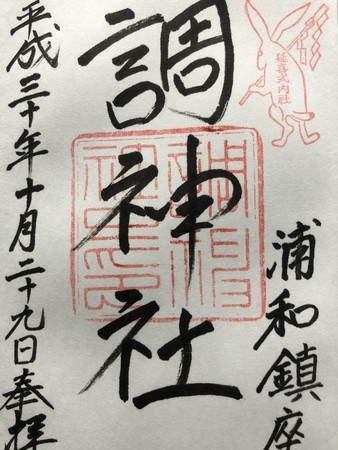 延喜式内社
浦和鎮座
調神社
平成三十年十月二十九日奉拝